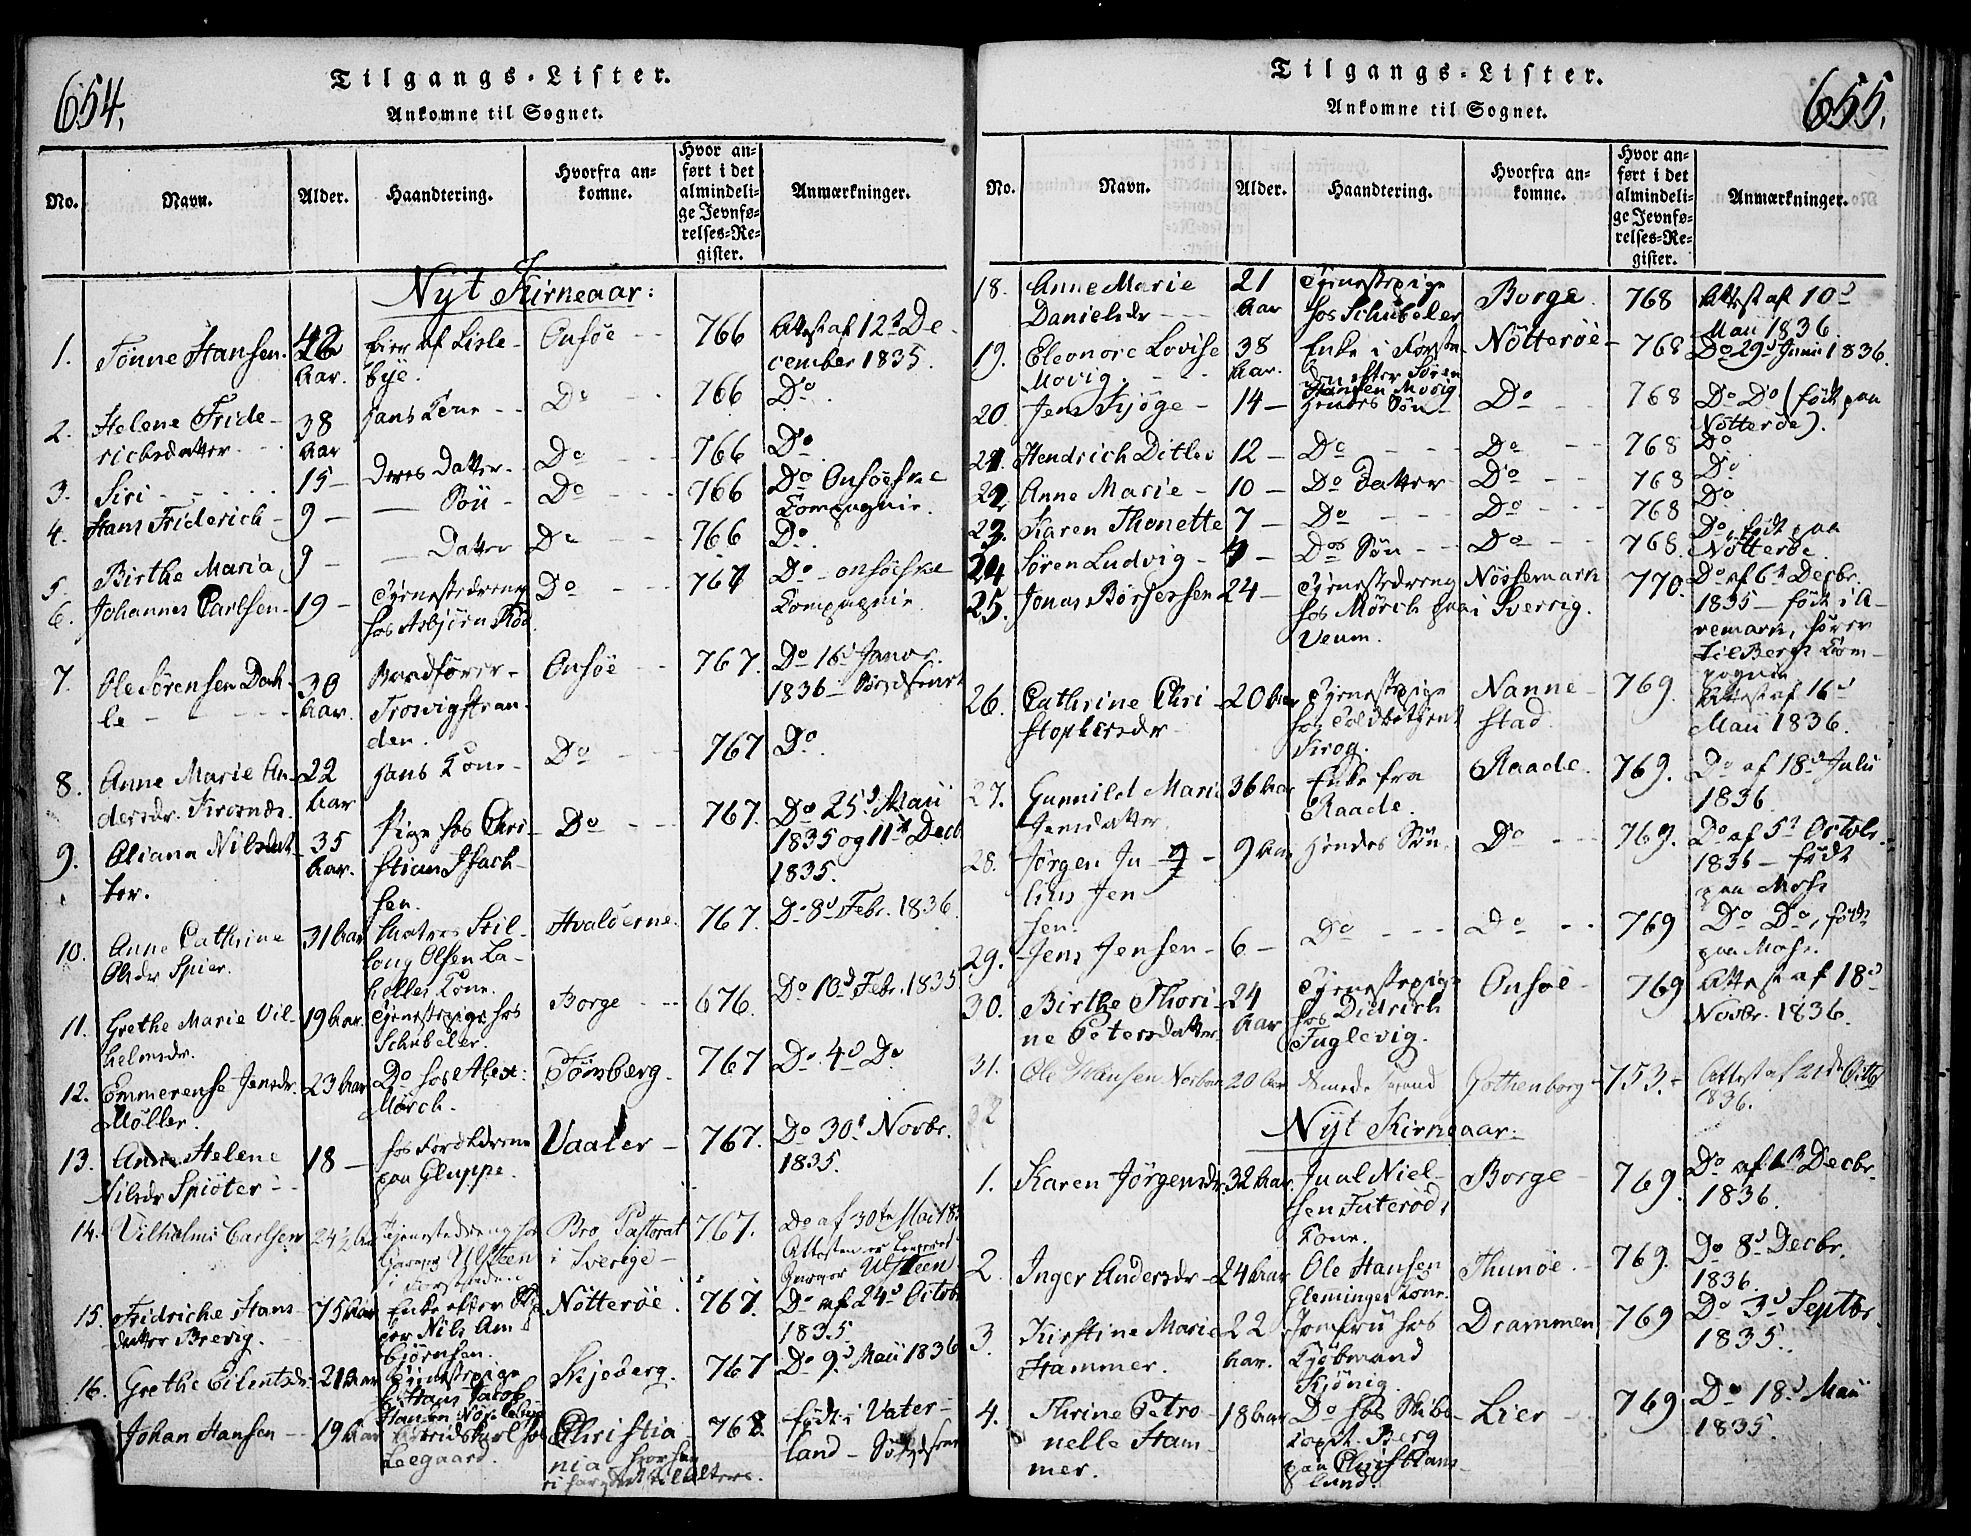 654.
Tilgangs-Lister.
Ankomne til Sognet.
No. Navn. Alder. Haandtering. Hvorfra ankomne. Hvor anført i det almindelige Jevnførelses-Register. Anmærkninger.
Nyt Kirkeaar:
1. Tønne Hansen. 42 Aar. Eier af Lislebye. Onsøe 766 Attest af 12te December 1835.
2. Helene Fridericksdatter 38 Aar hans Kone Do 766 Do
3. Siri 15 deres Datter Do 766 Do
4. Hans Friderich 9 Søn Do 766 Do Onsøeske Compagnie.
5. Birthe Maria 9 Datter Do 766 Do
6. Johannes Carlsen 19 Tjenestedreng hos Asbjørn Do 767 Do onsøeske Compagnie
7. Ole Sørensen Dahle 30 Aar. Trosvigstranden. Onsøe 767. Do 16d Januar 1836
8. Anne Marie Andersdr. Krosnæs. 22 Aar hans Kone Do 767 Do
9. Oliana Nilsdatter. 35 Aar. Pige hos Christian Isachsen. Do 767. Do 25d Maii 1835 og 11te Decb 1835.
10. Anne Cathrine Olsdr Spier. 31 Aar Matros Olsen Kone. Hvaløerne. 767. Do 8d Febr. 1836
11. Grethe Marie Vilhelmsdr. 19 Aar. Tjenestepige hos Schübeler. Borge 676. Do 10d Febr. 1835
12. Emmerense Jensdr. Møller. 23 Aar Do hos Alex: Mørch. Tønsberg. 767 Do 4d Do
13. Anne Helene Nilsdr Spiøter 18 hos Forældrene paa Gluppe. Vaaler 767. Do 30d Novbr. 1835.
14. Vilhelmi Carlsen 24½ Aar Tjenestedreng hos Ulsteen i Forstaden Bro Pastorat i Sverige 767. Do af 30te Mai 183 Attesten er Ulsteen
15. Fridriche Hansdatter Brevig. 75 Aar Enke efter Skipper Nils Ambjørnsen. Nøtterøe. 767. Do af 24d Octob 1835
16. Grethe Eilertsdr. 21 Aar Tjenestepige h. Hans Jacob Hansen Skjeberg. 767 Do 9d Maii 1836
Johan Hansen 19 Aar hos Leegaard. Christiania 768 født i Vaterland
655.
Tilgangs-Lister.
Ankomne til Sognet.
No. Navn. Alder. Haandtering. Hvorfra ankomne. Hvor anført i det almindelige Jevnførelses-Register. Anmærkninger.
18. Anne Marie Danielsdr 21 Aar Tjenestepige hos Schübeler Borge. 768 Attest af 10d Maii 1836.
19. Eleonore Lovise Movig. 38 Aar. Enke i Forstaden efter Søren Hansen Movig Nøtterøe 768 Do 29d Junii 1836.
20. Jens Kjøge 14 hendes Søn Do 768 Do Do (født paa Nøtterøe).
21. Hendrich Ditlev 12 Do Do 768 Do
22. Anne Marie 10 Do Datter Do 768 Do
23. Karen Thonette 7 Do Do 768 Do
24 Søren Ludvig 4 Do Søn Do 768. Do, født paa Nøtterøe.
25. Jonas Børjersen 24 Tjenestedreng hos Mørch paa Veum. Nøssemark i Sverrig. 770. Do af 6te Decbr. 1835 født i Aremark, hører til Bergs Compagnie
26. Cathrine Christophersdr 20 Aar Tjenestepige hos Toldbetjent Krog. Nannestad. 769. Attest af 16d Maii 1836.
27. Gunnild Marie Jensdatter 36 Aar Enke fra Raade. Raade. 769. Do af 18d Julii 1836
28. Jørgen Julius Jensen. 9 Aar hendes Søn. Do 769. Do af 5te Octobr. 1836 født paa Moss
29. Jens Jensen 6 Do Do 769 Do Do, født paa Moss.
30. Birthe Thorine Petersdatter 24 Aar Tjenestepige hos Didrich Fuglevig. Onsøe 769 Attest af 18d Novbr. 1836.
31. Ole Hansen 20 Aar Gothenborg 753. Attest af 21de Octb 1836.
32
Nyt Kirkeaar:
1. Karen Jørgensdr 32 Aar. Juul Nielsen Futerøds Kone. Borge 769. Do af 1te Decbr. 1836.
2. Inger Andersdr 24 Aar Ole Hansen Glemminges Kone. Thunøe. 769. Do 8d Decbr. 1836
3. Kirstine Marie Hammer. 22 Aar. Jomfru hos Kjøbmand Kjønig. Drammen 769 Do 3d Septbr 1835.
4. Thrine Petronelle Hammer. 18 Aar Do hos Skibscapt. Berg paa Christianslund. Lier 769 Do 18d Maii 1835.